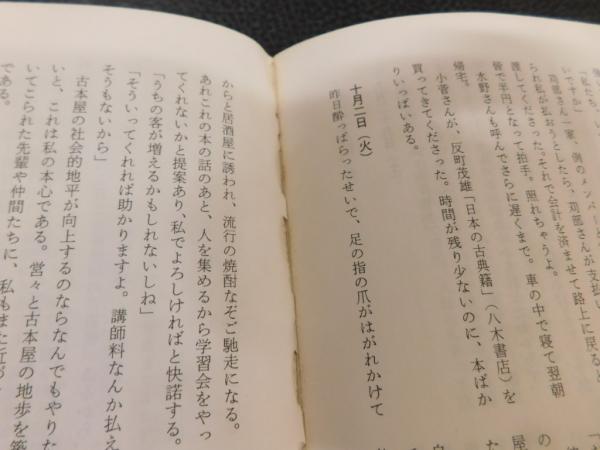 「私たち、い
いですか」
苅部さん一家、例のメンバーと
られ私が払おうとしたら、苅部さんが支払い
護してくださった。それで会計を済ませて路上に戻ると
皆で半円となって拍手。照れちゃうよ。
水野さんも呼んでさらに遅くまで。車の中で寝て翌朝
帰宅。
小菅さんが、反町茂雄「日本の古典籍」(八木書店)を
買ってきてくださった。時間が残り少ないのに、本ばか
りいっぱいある。
十月二日(火)
昨日酔っぱらったせいで、足の指の爪がはがれかけて
からと居酒屋に誘われ、流行の焼酎なぞご馳走になる。
あれこれの本の話のあと、人を集めるから学習会をやっ
てくれないかと提案あり、私でよろしければと快諾する。
「うちの客が増えるかもしれないしね」
「そういってくれれば助かりますよ。講師料なんか払え
そうもないから」
古本屋の社会的地平が向上するのならなんでもやりた
いと、これは私の本心である。営々と古本屋の地歩を築
いてこられた先輩や仲間たちに、私もまた近が
である。